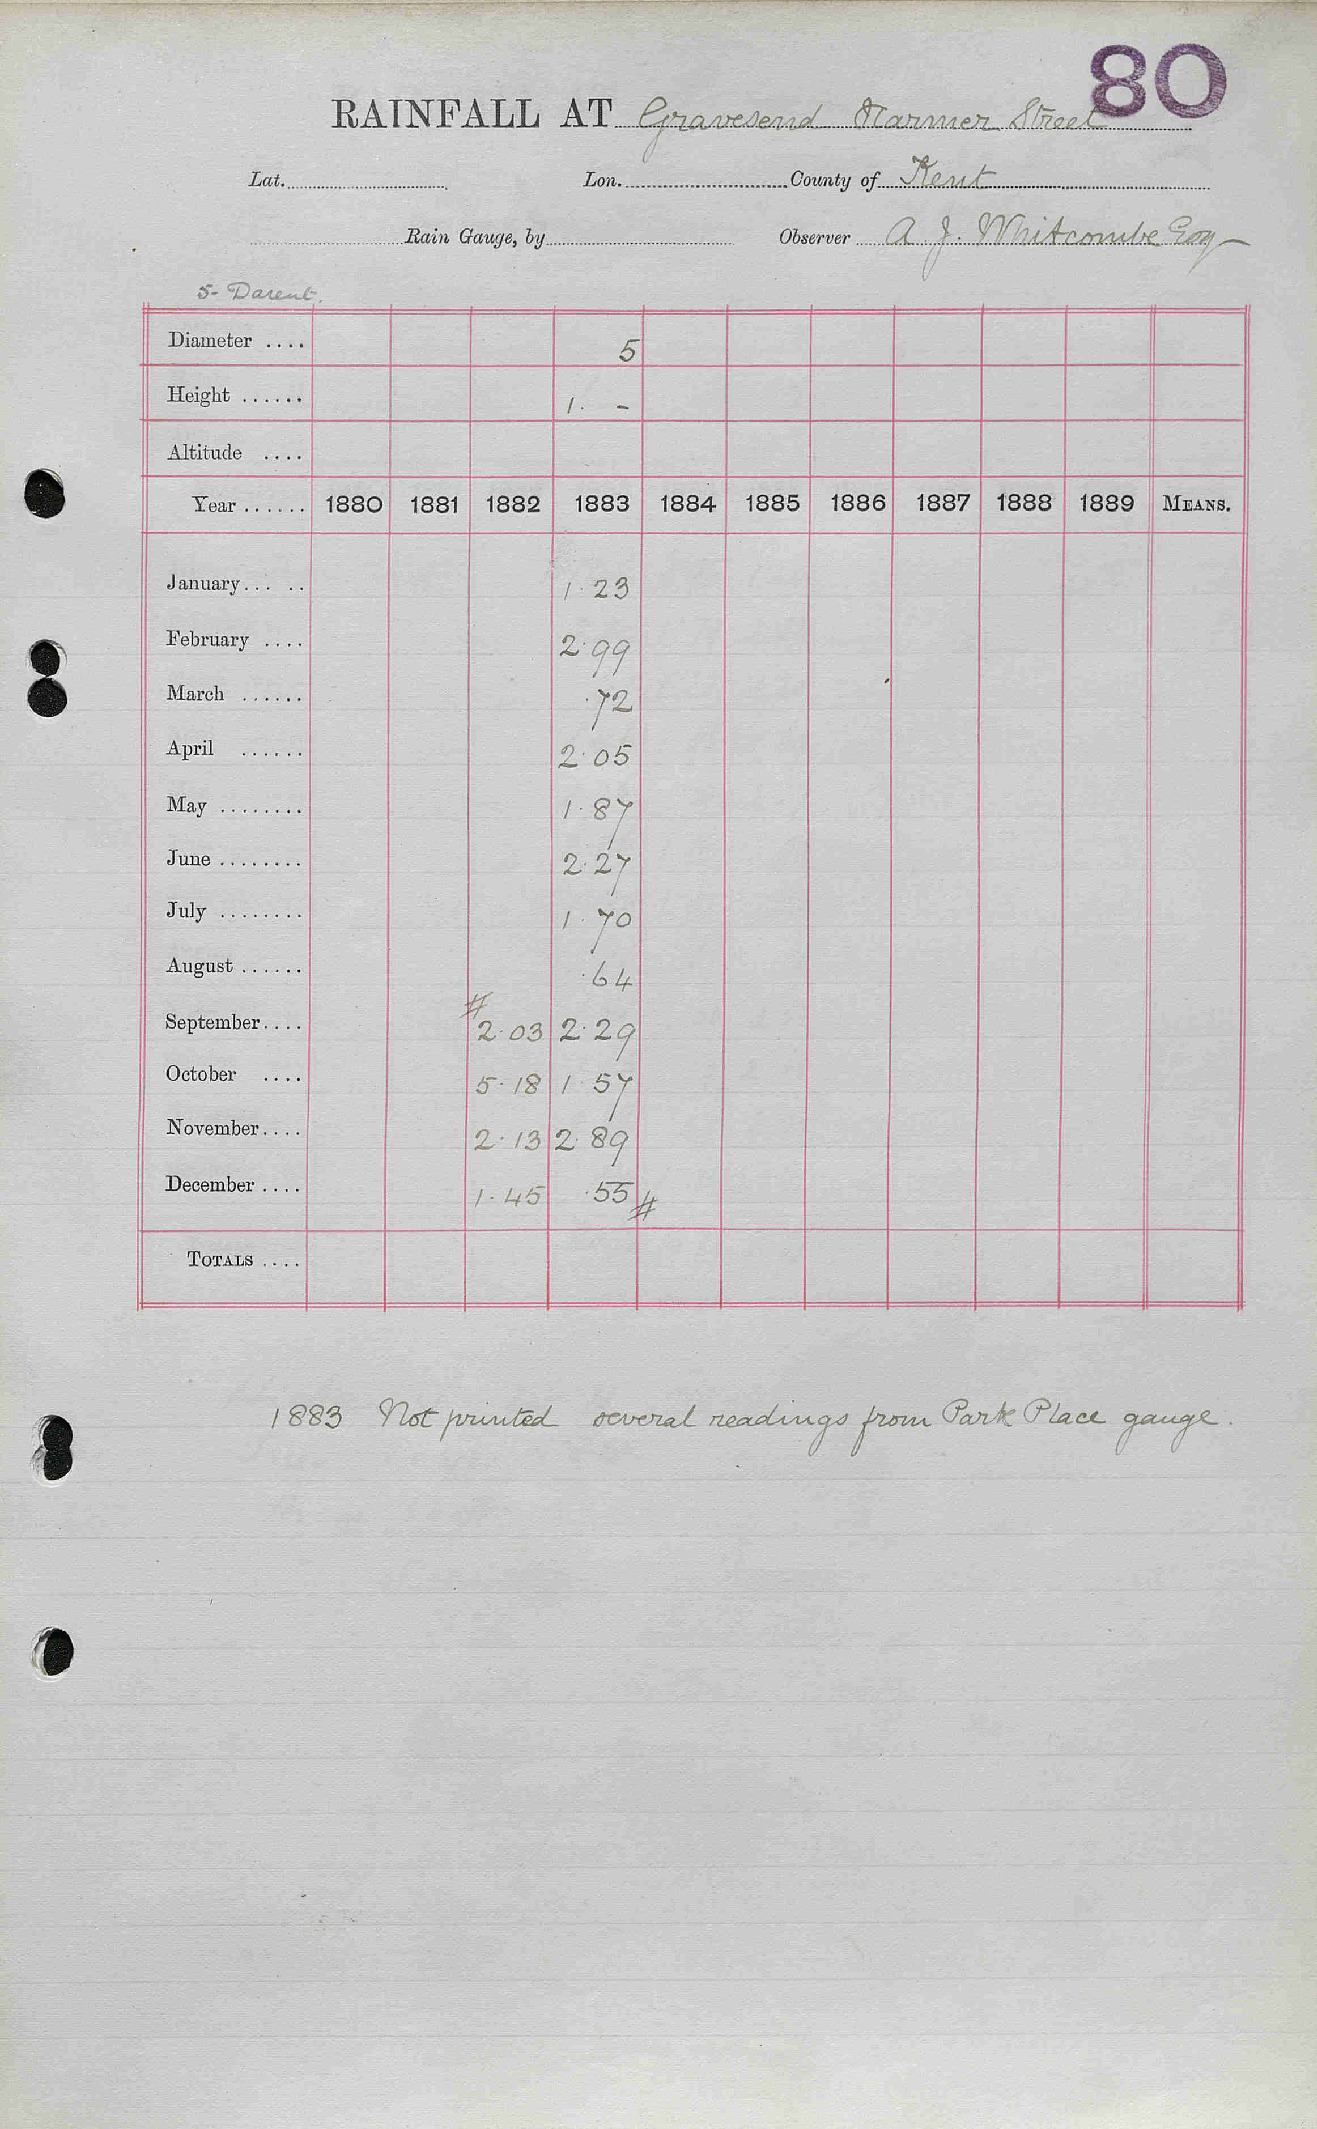 80
RAINFALL AT Gravesend Harmer Street
Lat. Lon. County of Kent
Rain Gauge, by Observer A. J. Whitcombe Esq
5- Darent.
Diameter .... 5
Height ...... 1. -
Altitude ....
Year ...... 1880 1881 1882 1883 1884 1885 1886 1887 1888 1889 MEANS.
January... .. 1.23
February .... 2.99
March ...... .72
April ...... 2.05
May ........ 1.87
June ........ 2.27
July ........ 1.70
August ...... .64
September.... #2.03 2.29
October .... 5.18 1.57
November.... 2.13 2.89
December .... 1.45 .55#
TOTALS ....
1883 Not printed several readings from Park Place gauge.